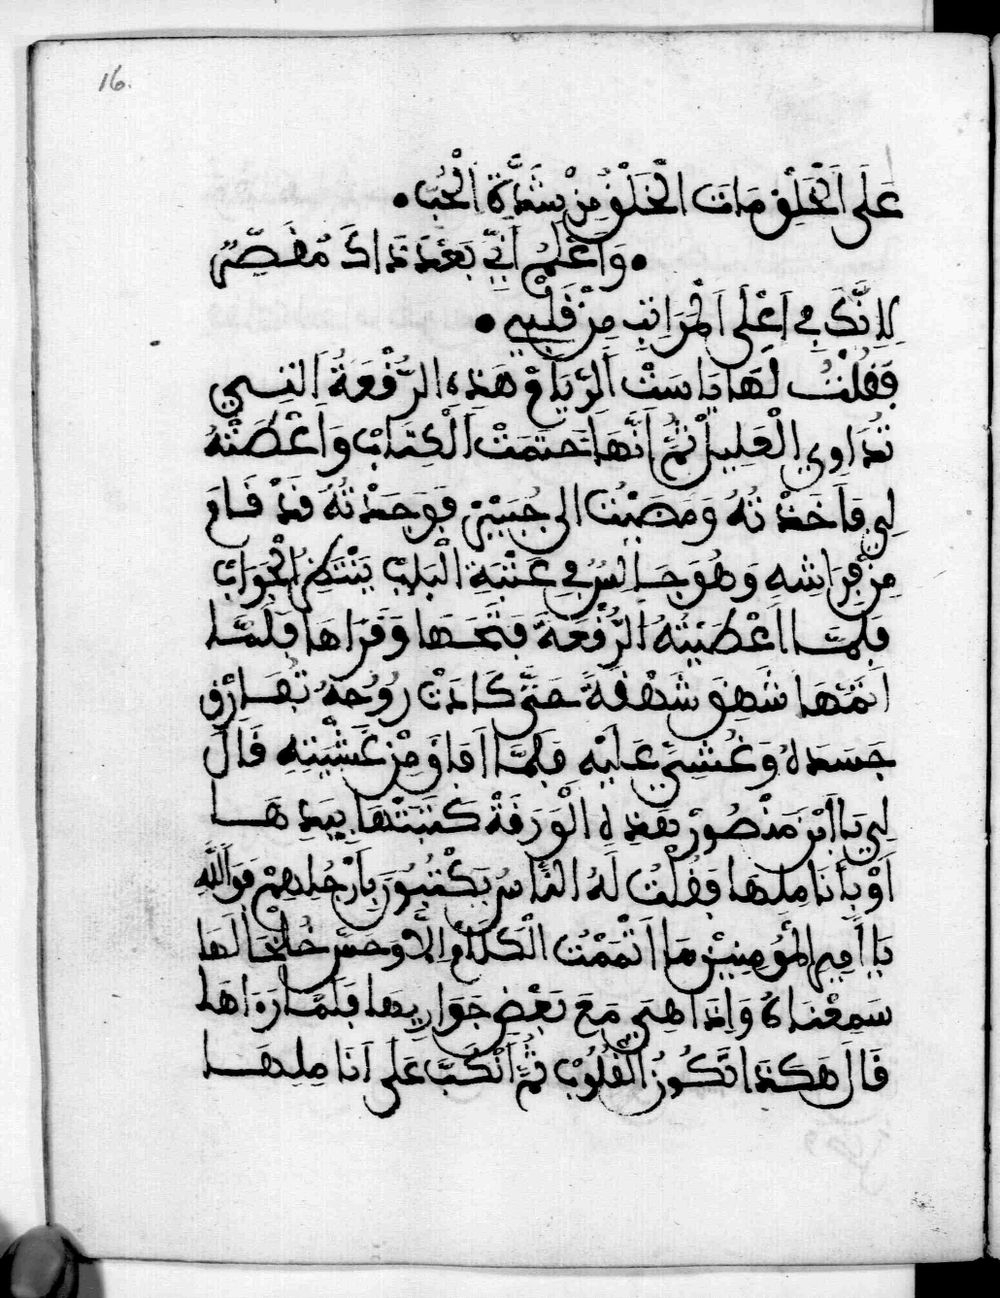 16.
عَلَى الْخَلْقِ مَاتَ الْخَلْقُ مِنْ شَدَّةِ الْحُبِّ •
• وَاعْلَمْ أَنِّي بَعْدَ ذَاكَ مُقَصِّرٌ
لِأَنَّكَ فِي أَعْلَى الْمَرَاتِبِ مِنْ قَلْبِي •
فَقُلْتُ لَهَا يَا سَتْ الرُّقْعَةُ هَذِهِ الرُّقْعَةُ التِي
تُدَاوِي الْعَلِيلْ ثُمَّ أَنَّهَا خَتَمَتْ الْكِتَابْ وَأَعْطَتْهُ
لِي فَأَخَذْتُهُ وَمَضَيْتُ الى جُبَيْرْ فَوَجَدْتُهُ قَدْ قَامَ
مِنْ فِرَاشِهِ وَهُوَ جَالِسٌ فِي عَتْبَةِ الْبَابْ يَنْتَظِرُ الْجَوَابْ
فَلَمَّا أَعْطَيْتُهُ الرُّقْعَةَ فَتَحَهَا وَقَرَاهَا فَلَمَّا
اتَمَّهَا شَهِقَ شَهْقَةً حَتَّى كَادَتْ رُوحُهُ تُفَارِقْ
جَسَدَهُ وَغُشِيَ عَلَيْهِ فَلَمَّا أَفَاقَ مِنْ غَشْيَتِهِ قَالَ
لِي يَا ابْنَ مَنْصُورْ بَعْدِ هِ الْوَرَقَةْ كَتَبَتْهَا بِيَدِهَا
أَوْ بِأَنَامِلِهَا فَقُلْتُ لَهُ النَّاسُ يَكْتُبُونَ بِأَرْجُلِهِمْ فَوَاللَّهِ
يَا أَمِيرَ الْمُؤْمِنِينْ مَا أَتْمَمْتُ الْكَلَامْ إِلَّا وَحَسَّ خُلْخَالَهَا
سَمِعْنَاهُ وَإِذَا هِيَ مَعَ بَعْضِ جَوَارِيهَا فَلَمَّا رَءَاهَا
قَالَ هَكَذَا تَكُونُ الْقُلُوبْ ثُمَّ أَنْكَبَّ عَلَى أَنَامِلِهَا